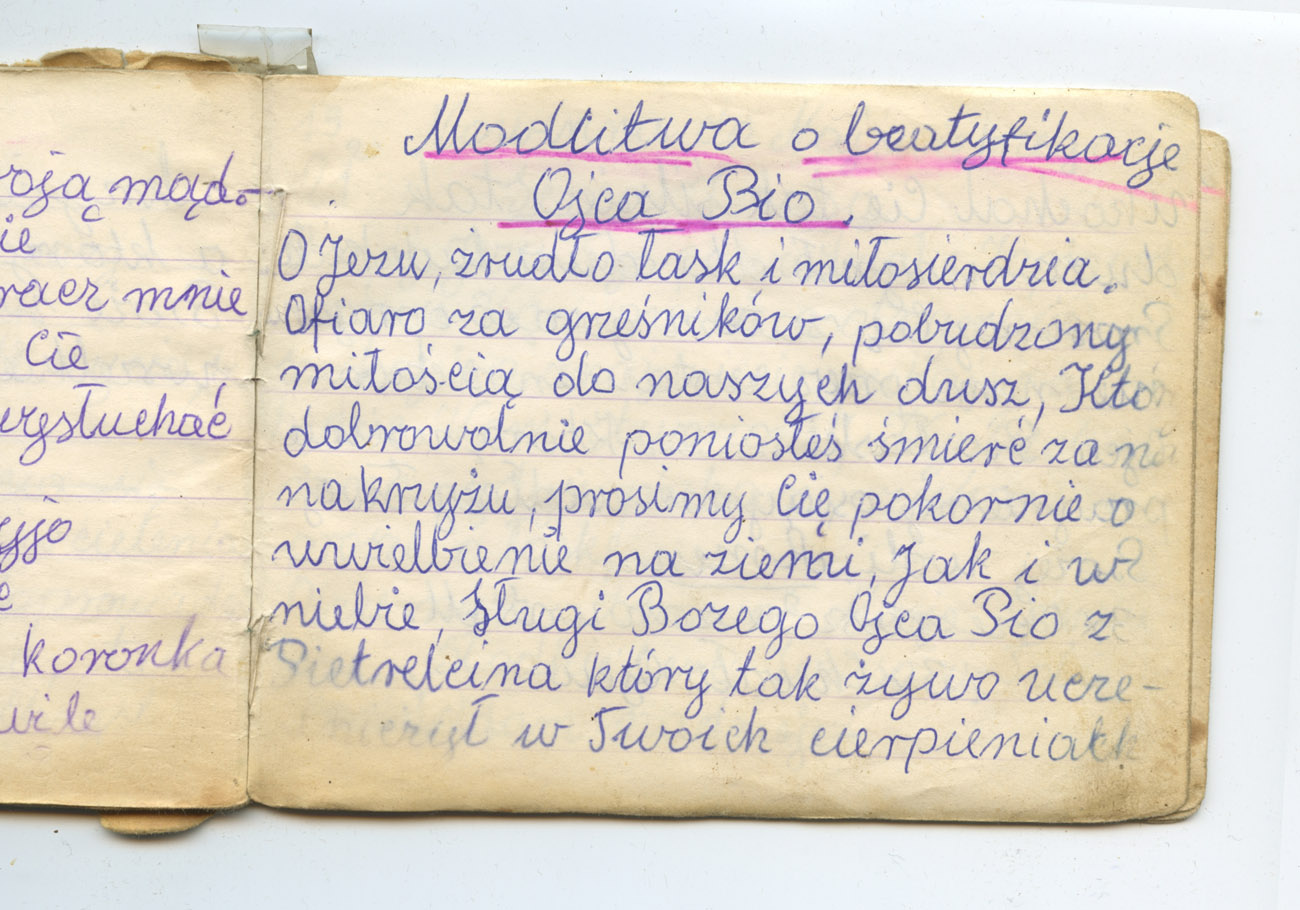 roją mąd-
ie
racz mnie
Cię
erzysłuchać
yjo
e
koronka
wile
Modlitwa o beatyfikacje
Ojca Bio.
O Jezu, żrudło łask i miłosierdzia.
Ofiaro za grześników, pobudzony
miłością do naszych dusz, Któ
dobrowolnie poniosłeś śmierć za na
na krzyżu, prosimy Cię pokornie o
uwielbienie na ziemi, Jak i w
niebie, Sługi Bożego Ojca Pio z
Pietrelcina który tak żywo ucze-
stniczył w Twoich cierpieniach